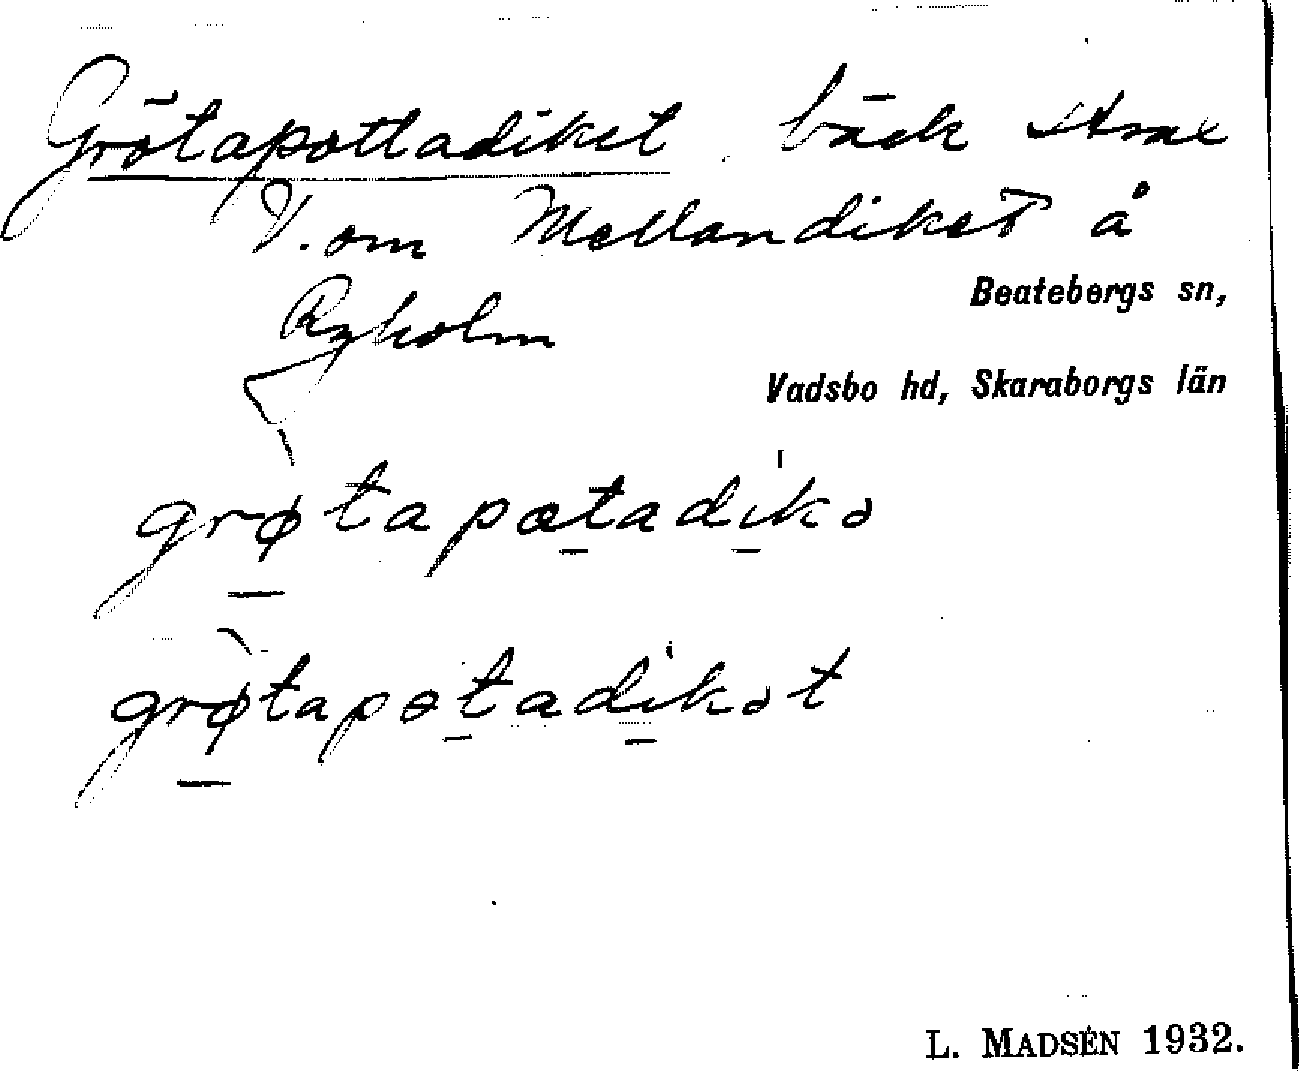 Grötapottadiket bäck
V. om Mellandiket å
Ryholm
Beatebergs sn,
Vadsbo hd, Skaraborgs län
grøtapotadikə
grøtapotadikət
L. MADSÉN 1932.